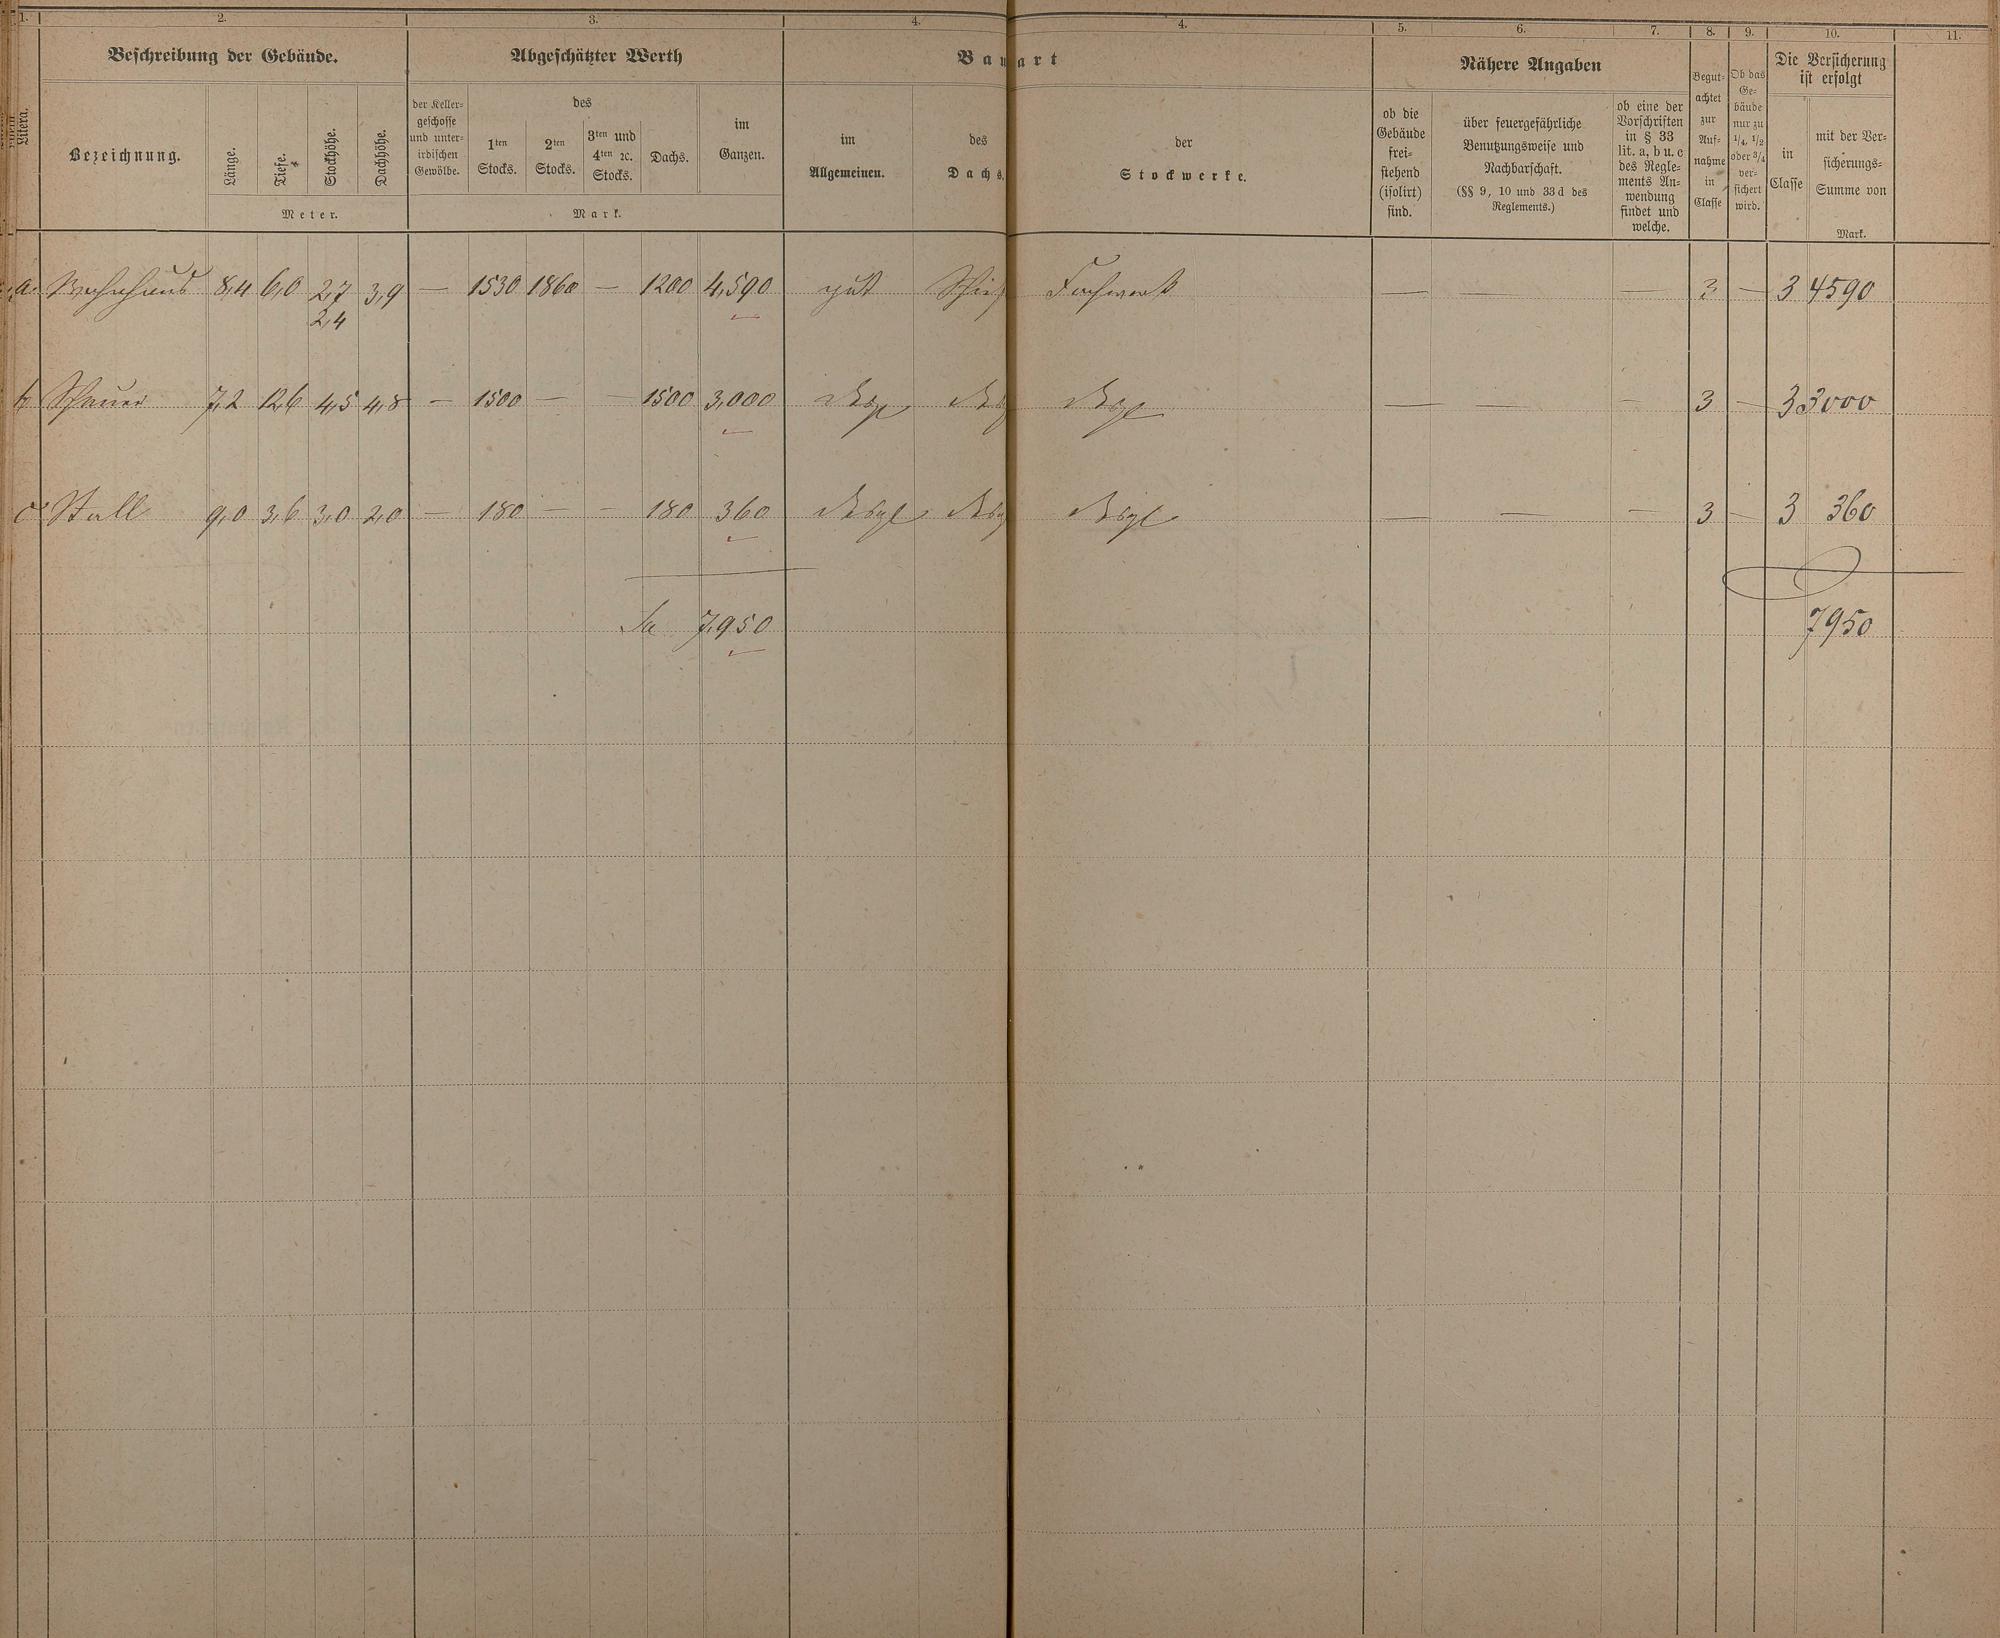 1. 2. 3. 4. 4. 5. 6. 7. 8. 9. 10. 11.
Beschreibung der Gebäude. Abgeschätzter Werth Bauart Nähere Angaben Die Versicherung ist erfolgt
Litera.
Bezeichnung.
Länge. Tiefe. Stockhöhe. Dachhöhe.
Meter.
der Keller-
geschosse
und unter-
irdischen
Gewölbe.
des
1ten
Stocks.
2ten
Stocks.
3ten und
4ten ꝛc.
Stocks.
Dachs.
im
Ganzen.
Mark.
im
Allgemeinen.
des
Dachs.
der
Stockwerke.
ob die
Gebäude
frei-
stehend
(isolirt)
sind.
über feuergefährliche
Benutzungsweise und
Nachbarschaft.
(§§ 9, 10 und 33 d des
Reglements.)
ob eine der
Vorschriften
in § 33
lit. a, b u. c
des Regle-
ments An-
wendung
findet und
welche.
Begut-
achtet
zur
Auf-
nahme
in
Classe
Ob das
Ge-
bäude
nur zu
1/4, 1/2
oder 3/4
ver-
sichert
wird.
in
Classe
mit der Ver-
sicherungs-
Summe von
Mark.
a. Wohnhaus 8,4 6,0 2,7 3,9 — 1530 1860 — 1200 4,590 gut Schief Fachwerk — — — 3 — 3 4590
2,4
b Scheuer 7,2 12,6 4,5 4,8 — 1500 — — 1500 3,000 — — — 3 — 3 3000
c Stall 9,0 3,6 3,0 2,0 — 180 — — 180 360 Desgl Desgl Desgl — — — 3 — 3 360
Sa 7,950 7950